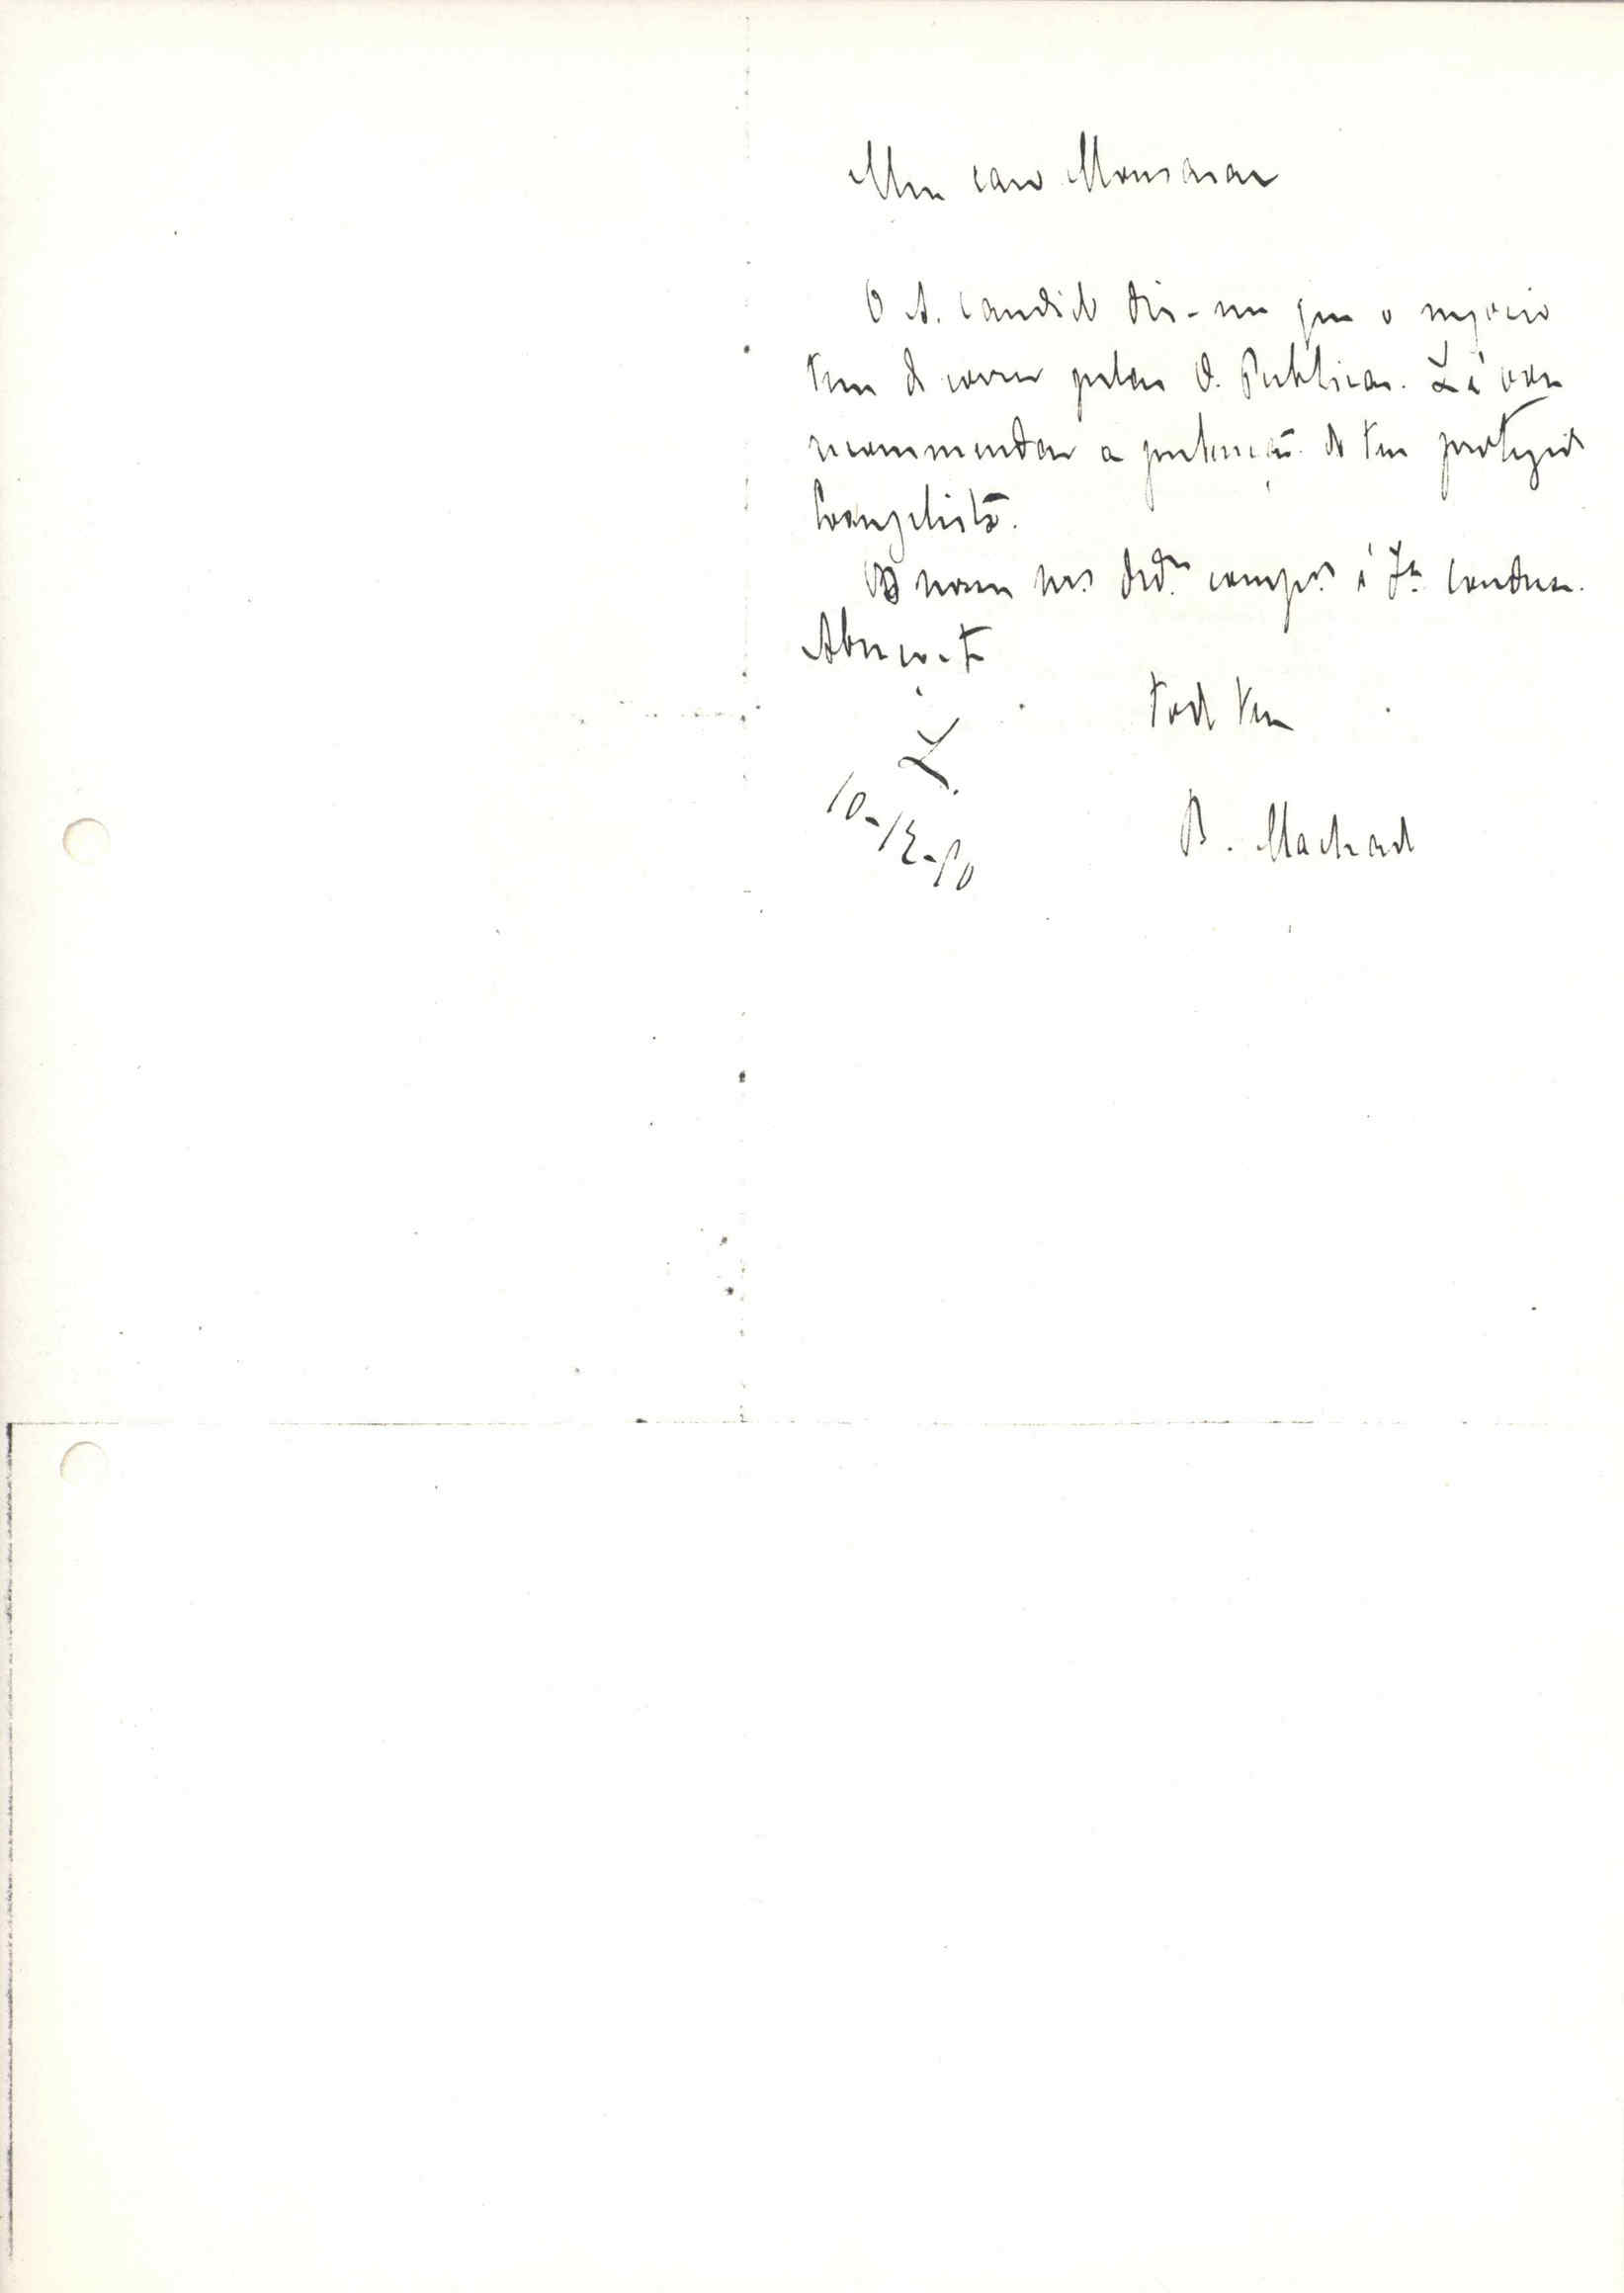 Meu caro Monsaraz
O A. Candido diz-me que o negocio
tem de correr pelas O. Publicas. Lá vou
recommendar a pretenção do teu protegido
Evangelista.
nossos comp.os á S.ra Condessa.
Abraça-te
Todo teu
B. Machado
L.
10-12-90